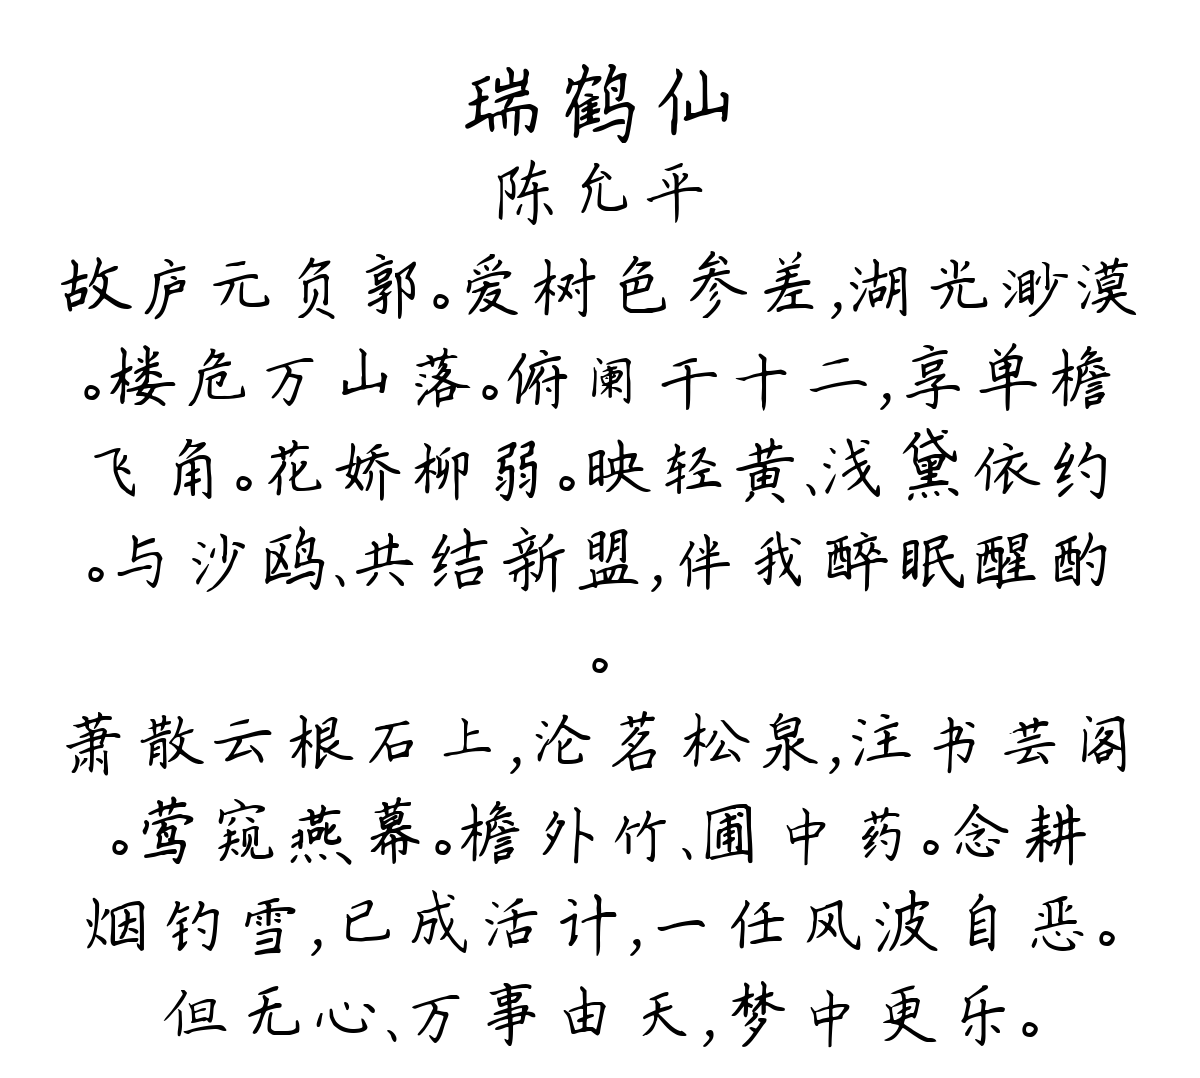 瑞鹤仙
陈允平
故庐元负郭。爱树色参差,湖光渺漠
。楼危万山落。俯阑干十二,享单檐
飞角。花娇柳弱。映轻黄、浅黛依约
。与沙鸥、共结新盟,伴我醉眠醒酌
。
萧散云根石上,沦茗松泉,注书芸阁
。莺窥燕幕。檐外竹、圃中药。念耕
烟钓雪,已成活计,一任风波自恶。
但无心、万事由天,梦中更乐。